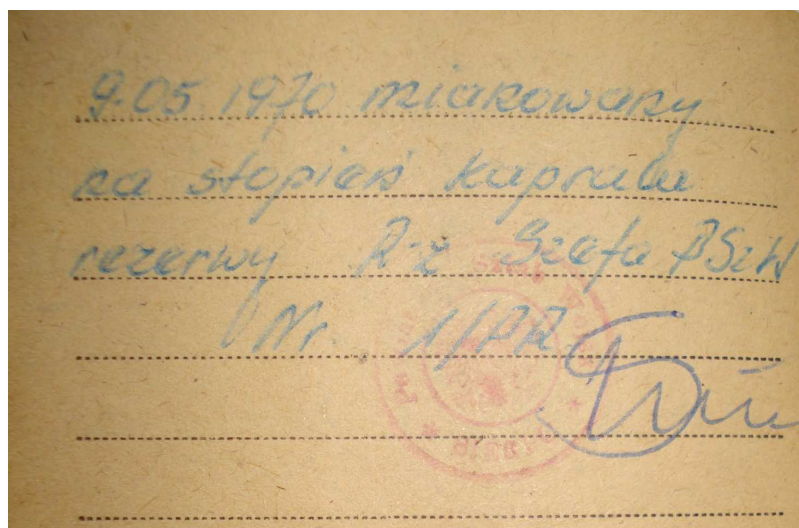 9.05.1970 mianowany
na stopień kaprala
rezerwy R-z Szefa PSzW
Nr. 1/PR.